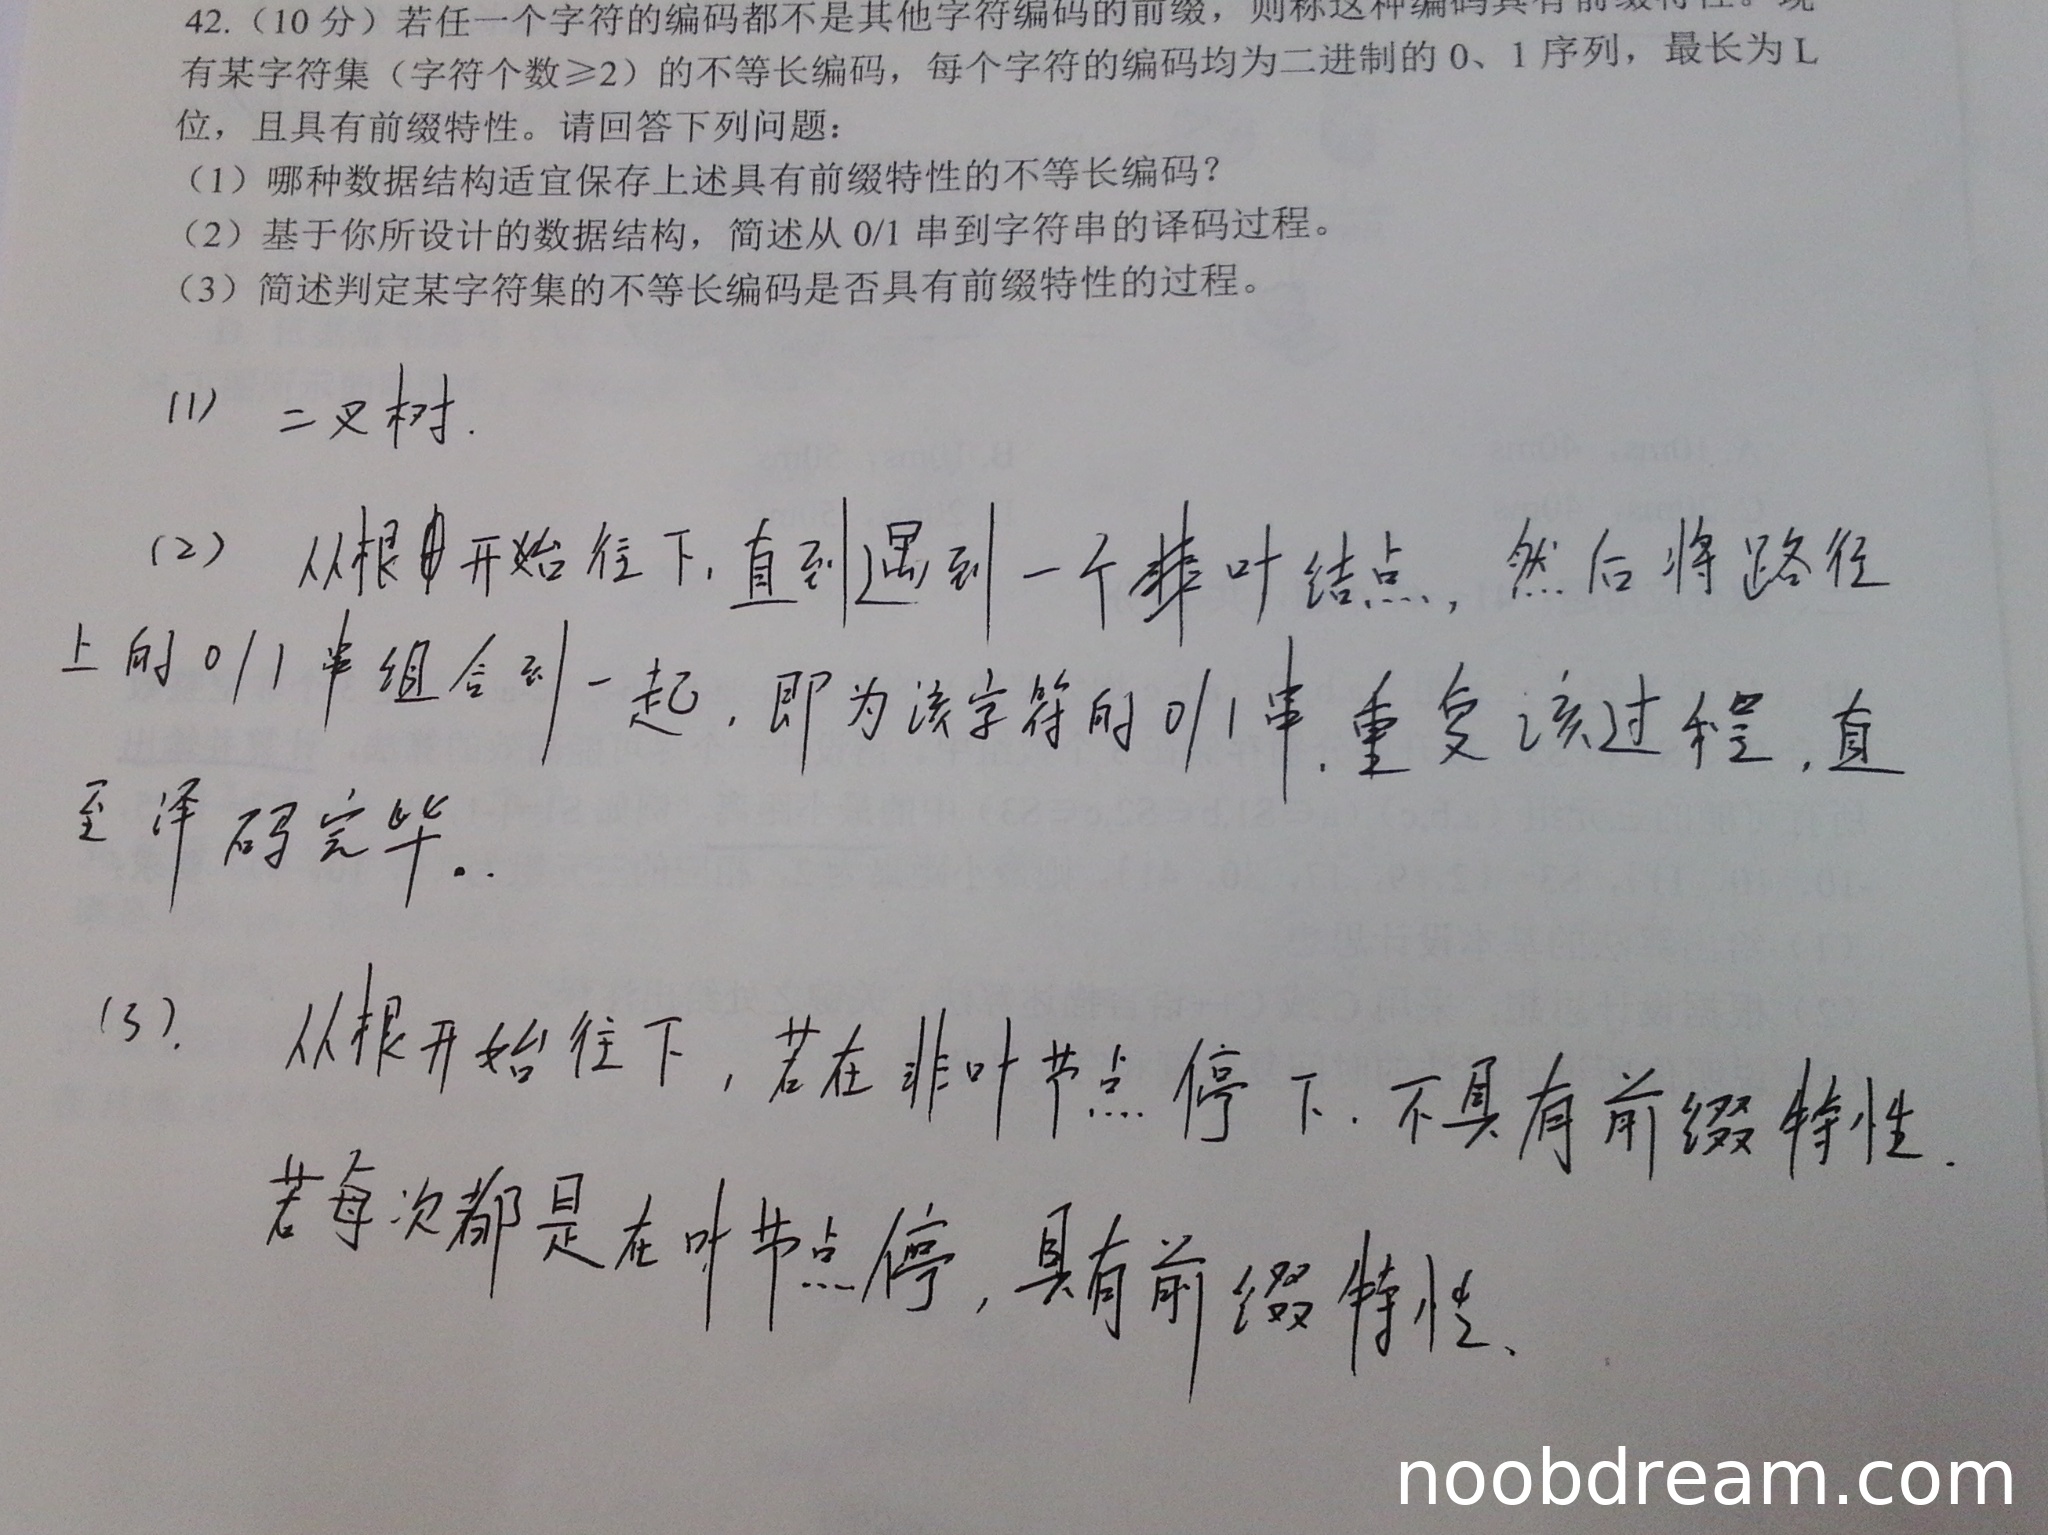 42.（10 分）若任一个字符的编码都不是其他字符编码的前缀，则称这种编码具有前缀特性。现
有某字符集（字符个数≥2）的不等长编码，每个字符的编码均为二进制的 0、1 序列，最长为 L
位，且具有前缀特性。请回答下列问题：
（1）哪种数据结构适宜保存上述具有前缀特性的不等长编码？
（2）基于你所设计的数据结构，简述从 0/1 串到字符串的译码过程。
（3）简述判定某字符集的不等长编码是否具有前缀特性的过程。
(1) 二叉树.
(2) 从根开始往下,直到遇到一个叶结点,然后将路径
上的0/1串组合到一起,即为该字符的0/1串.重复该过程,直
至译码完毕.
(3). 从根开始往下,若在非叶节点停下.不具有前缀特性.
若每次都是在叶节点停,具有前缀特性、
noobdream.com